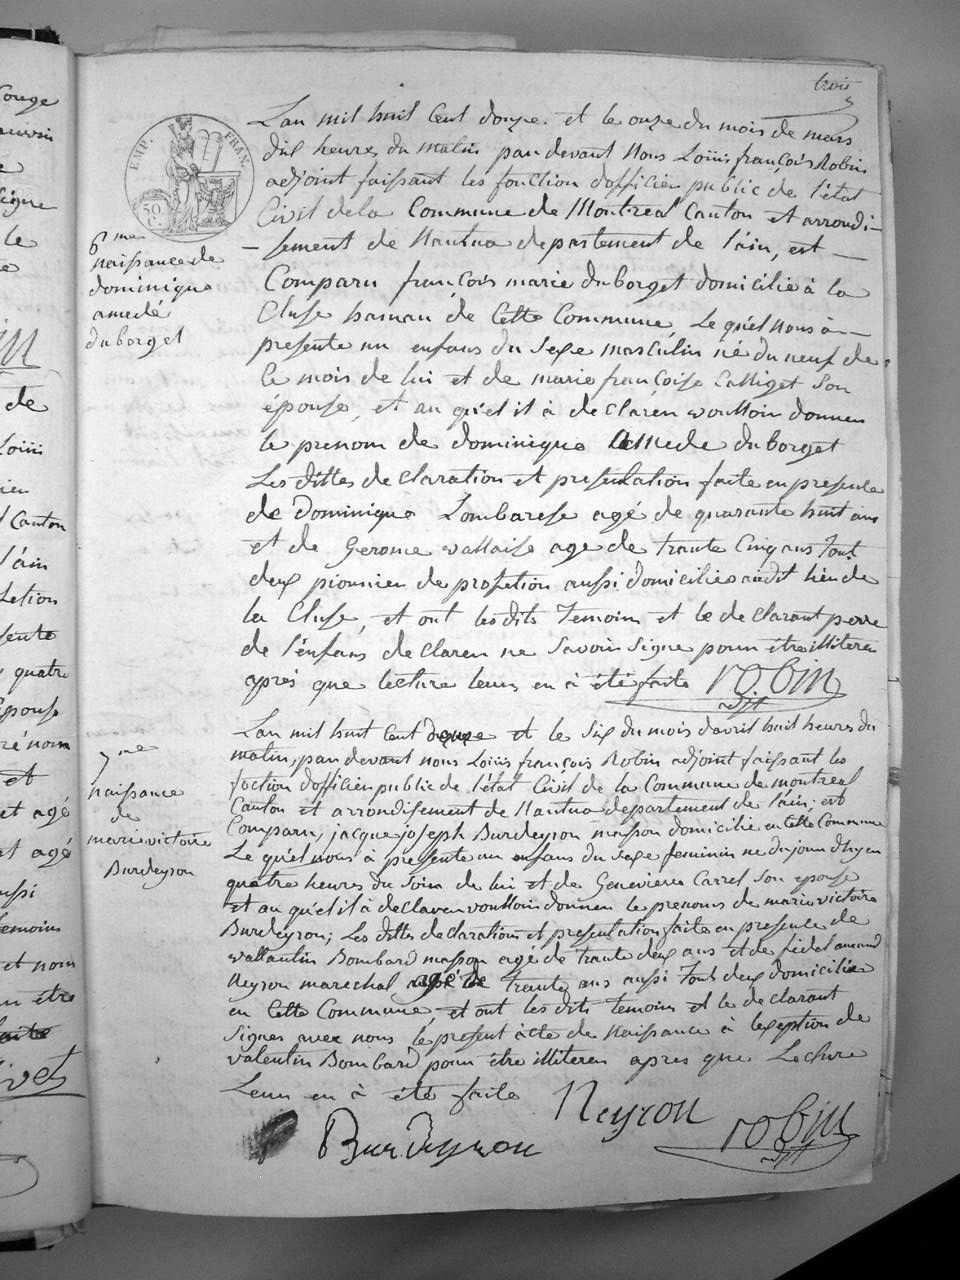 trois
EMP. FRAN.
50 C.
L'an mil huit Cent douze et le onze du mois de mars
dix heures du matin pardevant Nous Loüis françois Robin
adjoint faissant les fonction d'officier public de l'état
Civil de la Commune de Montreal Canton et arrondi-
-sement de Nantua departement de l'ain, est
Comparu françois marie duborget domicilié à la
Cluse hamau de Cette Commune, Le quel nous à
presente un enfans du Sexe masculin né du neuf de
Ce mois de lui et de marie françoise Calliget Son
épouse, et au quel il à declaren voulloir donnen
le prenom de dominique Amede duborget
Les dittes declaration et presentation faite en presence
de Dominique Lombarese agé de quarante huit ans
et de Gerome vallaise age de trante Cinq ans tout
deux pionnien de profetion aussi domicilies audit lieu de
la Cluse, et ont lesdits temoins et le declarant perre
de l'enfans declaren ne Savoir Signe pour être illiteren
aprés que lecture leurs en à été faite robin
adjt
6me
naissance de
dominique
amedé
duborget
L'an mil huit Cent douze et le Six du mois d'avril huit heures du
matin, pardevant nous Loüis françois Robin adjoint faissant les
foction d'officien public de l'état Civil de la Commune de montreal
Canton et arrondisement de Nantua departement de l'ain; est
Comparu, jacque joseph Burdeyron masson domicilié en Cette Commune
Le quel nous à pressente un enfans du Sexe feminin ne du jour d'hyer
quatre heures du Soir de lui et de Genevieve Carrel Son epouse
et au quel il à declaren voulloir donnen le prenoms de marie victoire
Burdeyron; Les dittes declarations et presentation faite en presence de
vallantin Bombard masson age de trante deux ans et de fidel amand
Neyron marechal agé de trante ans aussi tout deux domicilie
en Cette Commune et ont les dits temoins et le declarant
Signes avec nous le present acte de Naissance à l'exeption de
valentin Bombard pour être illiteren apres que Lecture
Leurs en à été faite Neyron
Burdeyron robin
adjt
7me
naissance
de
marie victoire
Burdeyron